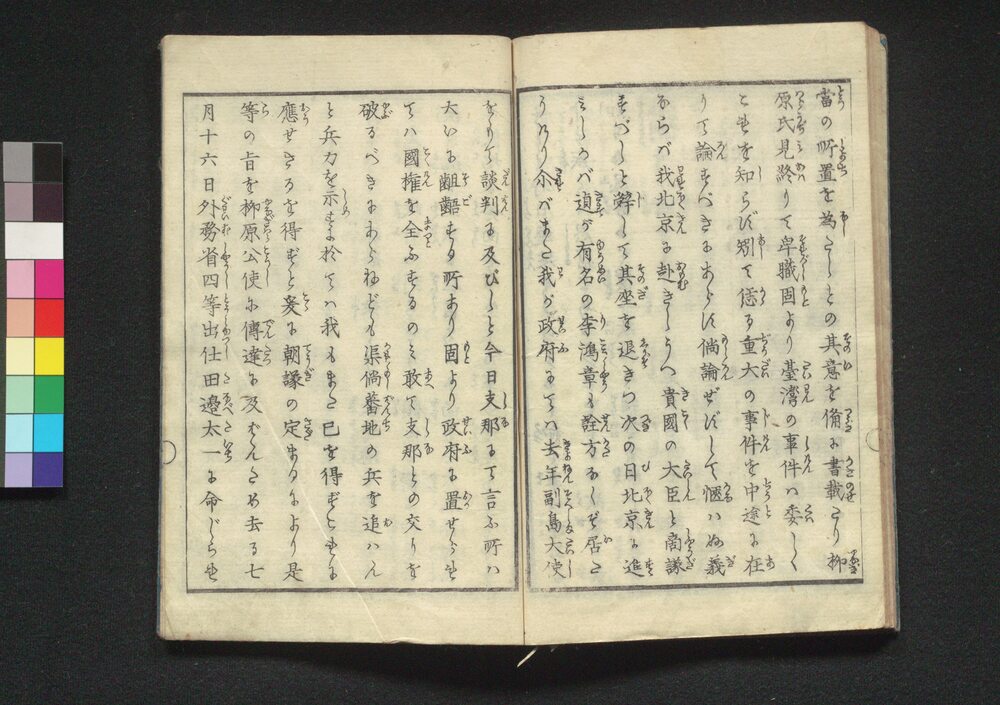 當の所置を為さんとの其意を備に書載たり柳
原氏見終りて卑職固より臺灣の事件ハ委しく
これを知らず別て係る重大の事件を中途に在
りて論ずべきにあらず倘論ぜずして愜ハぬ義
ならバ我北京に赴きしうへ貴國の大臣と商議
すべしと辞して其座を退きつ次の日北京に進
みしかバ適が有名の李鴻章も詮方なくぞ居た
りけり尓バまた我が政府にてハ去年副島大使
をもて談判に及びしと今日支那にて言ふ所ハ
大いに齟齬する所あり固より政府に置せられ
てハ國権を全ふするのみ敢て支那との交りを
破るべきにあらねども渠倘蕃地の兵を追ハん
と兵力を示すに於てハ我もまた已を得ずこれに
應せざるを得ずと爰に朝議の定まるにより是
等の旨を柳原公使に傳達に及ばんため去る七
月十六日外務省四等出仕田邉太一に命ぜられ